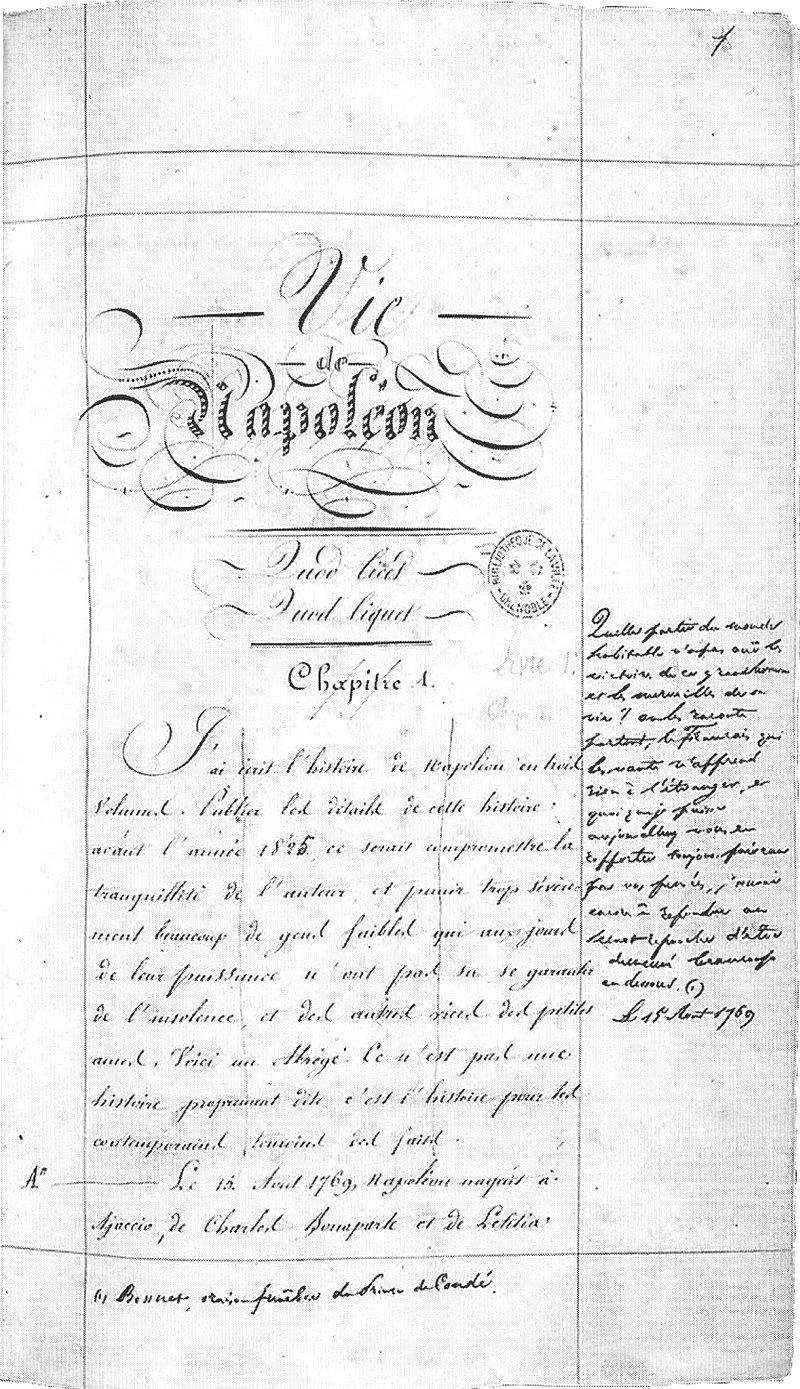 1
Vie
de
Napoléon
Quod licet
Quod liquet
BIBLIOTHÈQUE DE LA VILLE
GRENOBLE
Livre 1.
Chapitre 1.
Ch. 1.
J'ai écrit l'histoire de Napoléon en trois
volumes. Publier les détails de cette histoire
avant l'année 1825, ce serait compromettre la
tranquillité de l'auteur, et punir trop sévère-
ment beaucoup de gens faibles qui aux jours
de leur puissance n'ont pas su se garantir
de l'insolence, et des autres vices des petites
ames. Voici un Abrégé. Ce n'est pas une
histoire proprement dite, c'est l'histoire pour les
contemporains témoins des faits.
A.n
Le 15 Aout 1769, Napoléon naquit à
Ajaccio, de Charles Bonaparte et de Letitia
Quelles parties du monde
habitable n'a pas ouï les
victoires de ce grand homme
et les merveilles de sa
vie ? on les raconte
partout, le Français qui
les vante n'apprend
rien à l'étranger, et
quoi que je puisse
aujourd'huy vous en
rapporter toujours prévenu
par vos pensées, j'aurai
encore à répondre au
secret reproche d'être
demeuré beaucoup
au dessous. (1)
Le 15 Aout 1769
(1) Bossuet, oraison funèbre du Prince de Condé.